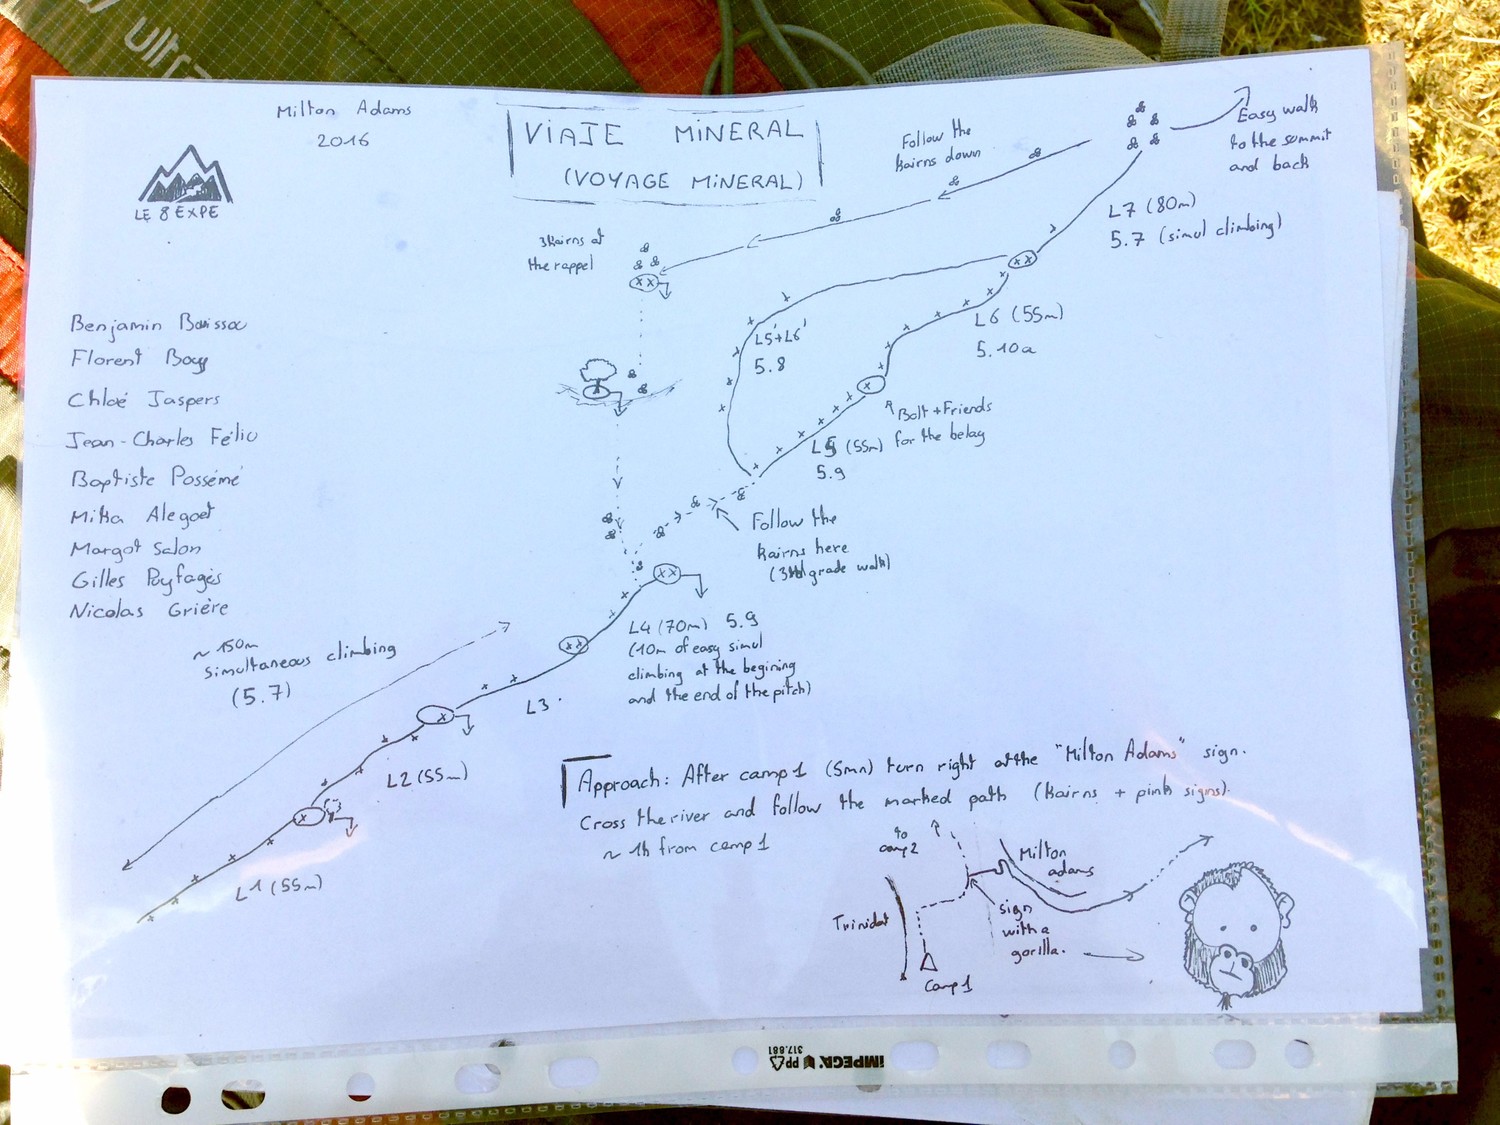 ultra
Milton Adams
2016
LE 8 EXPE
VIAJE MINERAL
(VOYAGE MINERAL)
Follow the
kairns down
Easy walk
to the summit
and back
L7 (80m)
5.7 (simul climbing)
3 kairns at
the rappel
L6 (55m)
5.10a
L5'+L6'
5.8
Bolt + Friends
for the belay
L5 (55m)
5.9
Follow the
kairns here
(3rd grade walk)
Benjamin
Florent
Chloé Jaspers
Jean-Charles Félic
Baptiste Possémé
Mika Alegoet
Margot Salon
Gilles Puyfagès
Nicolas Grière
~ 150m
Simultaneous climbing
(5.7)
L4 (70m) 5.9
(10m of easy simul
climbing at the begining
and the end of the pitch)
L3
L2 (55m)
L1 (55m)
Approach: After camp 1 (5mn) turn right at the "Milton Adams" sign.
Cross the river and follow the marked path (kairns + pink signs).
~ 1h from camp 1
to
camp 2
Milton
adams
Trinidat
sign
with a
gorilla.
Camp 1
IMPEGA PP
317.881